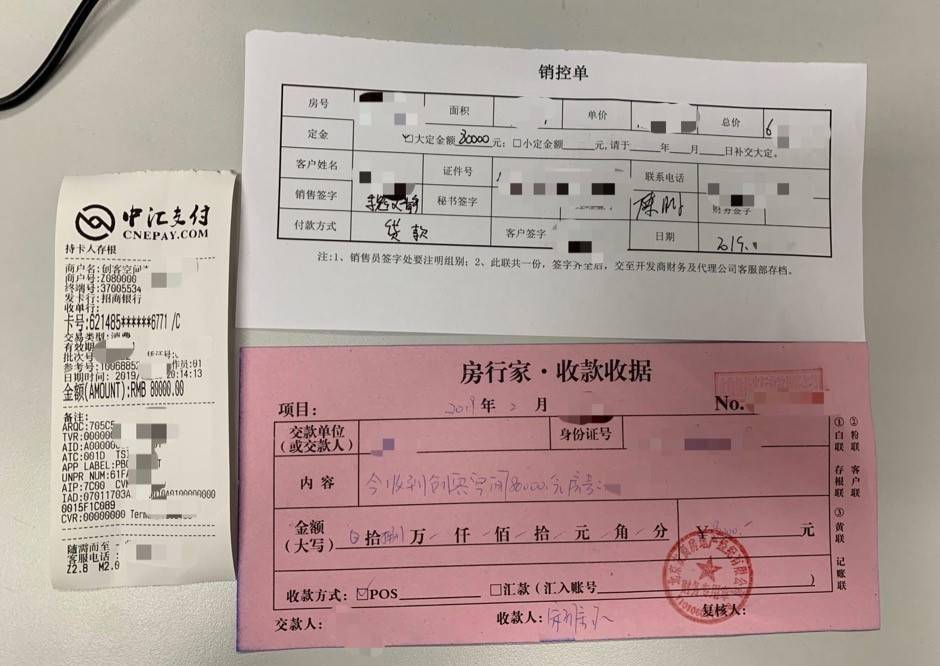 销控单
房号 面积 单价 总价 6
定金 ☑大定金额80000元; □小定金额 元,请于 年 月 日补交大定。
客户姓名 证件号 联系电话
销售签字 秘书签字
付款方式 贷款 客户签字 日期 2019.
注:1、销售员签字处要注明组别; 2、此联共一份,签字齐全后,交至开发商财务及代理公司客服部存档。
中汇支付
CNEPAY.COM
持卡人存根
商户名:创客空间
商户号:Z080000
终端号:37005534
发卡行:招商银行
收单行:
卡号:621485******6771 /C
交易类型:消费
有效期
批次号 凭证号:
参考号:1006885 作员:01
日期时间: 2019/ 20:14:13
金额(AMOUNT):RMB 80000.00
备注:
ARQC:705C5
TVR:000000
AID:A00000
ATC:001D TSI
APP LABEL:PBO
UNPR NUM:61FA
AIP:7C00 CVM
IAD:07011703A 010A0100000000
0015F1C089
CVR:00000000 Term
随需而至
客服电话:
Z2.8 M2.0
房行家·收款收据
项目: 2019年 2 月 No.
交款单位
(或交款人) 身份证号
内容 今收到创客空间80000元房
金额
(大写) 拾捌万 仟 佰 拾 元 角 分 ¥ 元
收款方式:☑POS □汇款(汇入账号 )
交款人: 收款人: 复核人:
①白联 存根联 ③黄联 记账联
②粉联 客户联